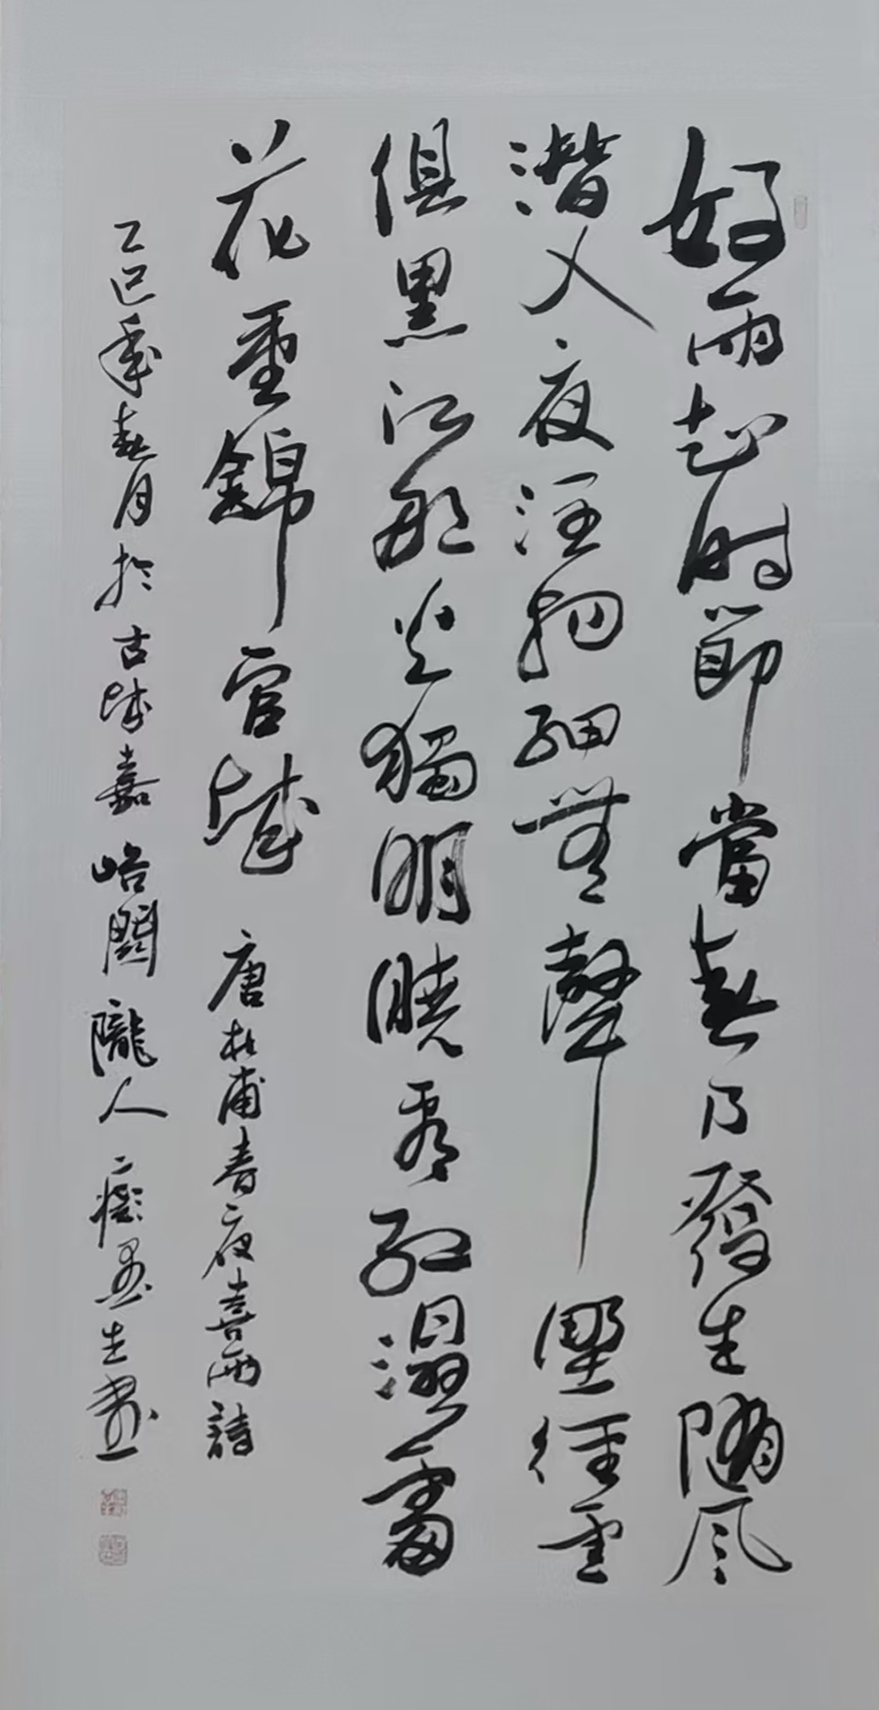 好雨知时節當春乃發生隨风
潛入夜潤物細無聲野徑雲
俱黑江船火獨明曉看紅濕處
花重錦官城 唐杜甫春夜喜雨詩
乙巳年春月於古城嘉峪關隴人癡墨生書